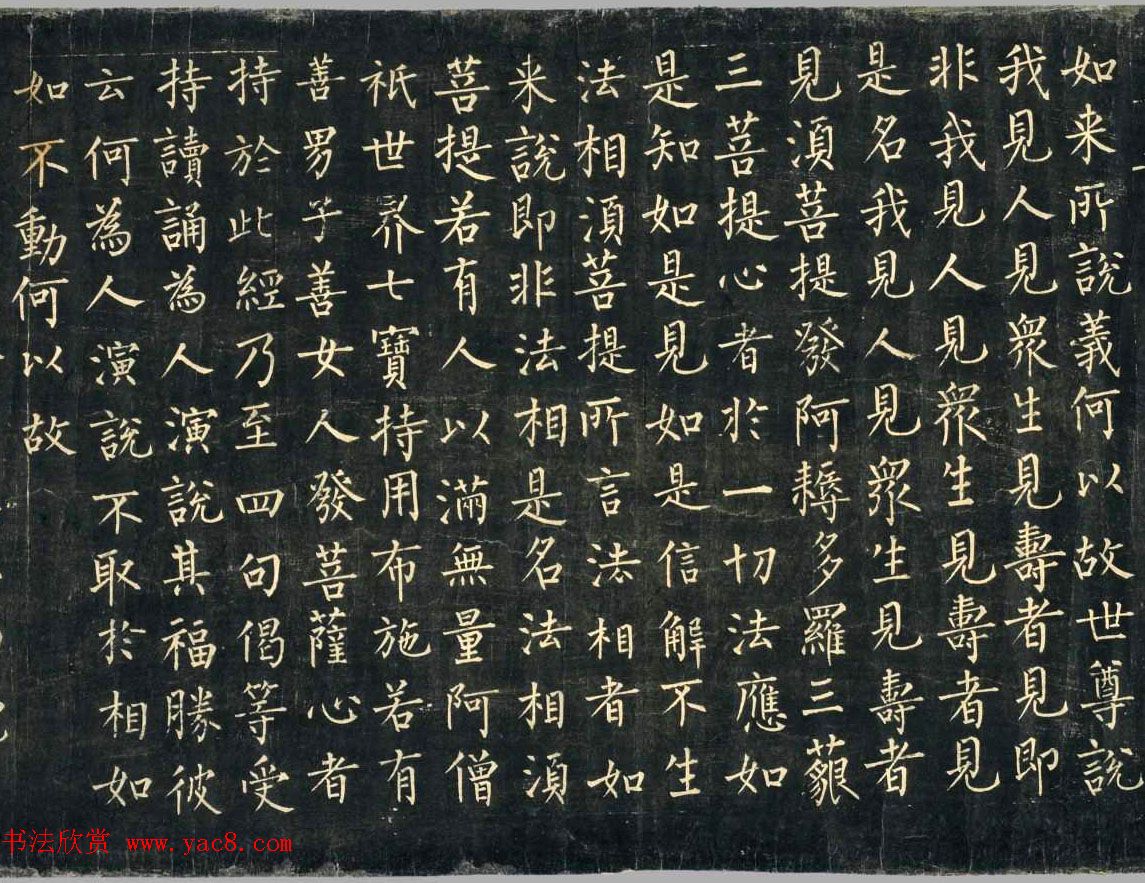 如来所說義何以故世尊說
我見人見衆生見壽者見即
非我見人見衆生見壽者見
是名我見人見衆生見壽者
見須菩提發阿耨多羅三藐
三菩提心者於一切法應如
是知如是見如是信解不生
法相須菩提所言法相者如
来說即非法相是名法相須
菩提若有人以滿無量阿僧
祇世界七寶持用布施若有
善男子善女人發菩薩心者
持於此經乃至四句偈等受
持讀誦為人演說其福勝彼
云何為人演說不取於相如
如不動何以故
书法欣赏 www.yac8.com